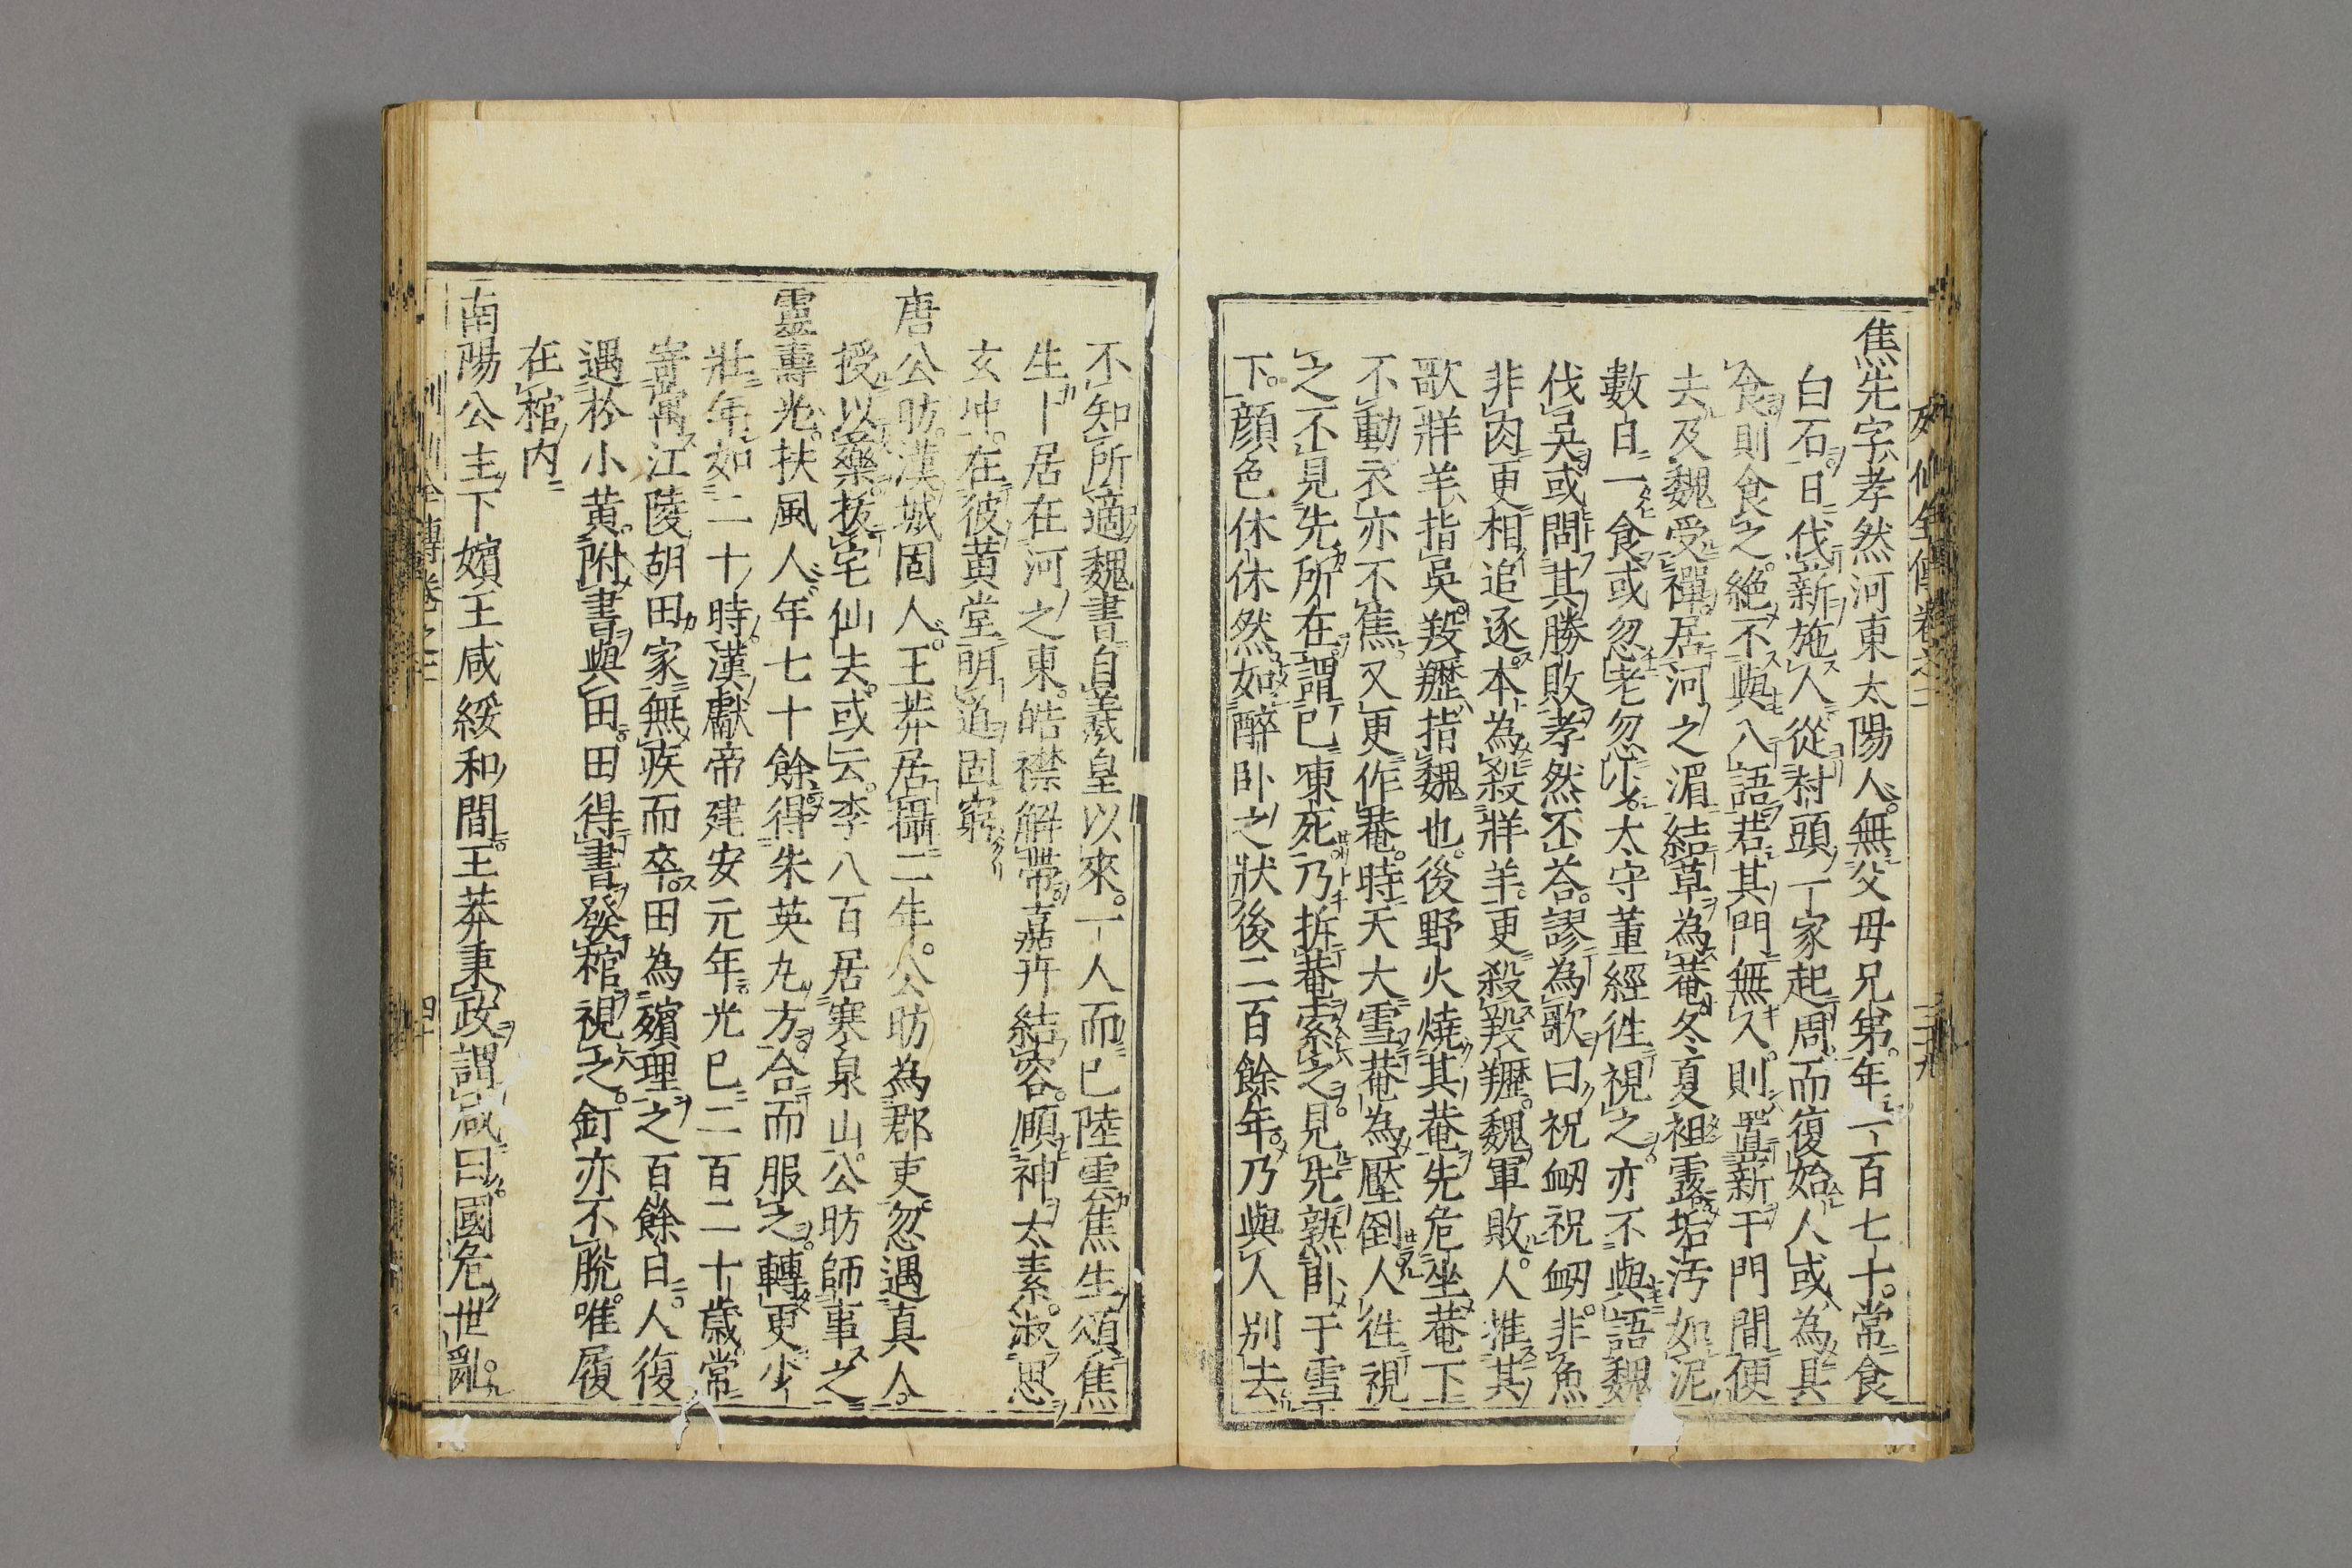 焦先字孝然河東太陽人無父母兄弟年一百七十常食
白石日伐薪施人從村頭一家起周而復始人或為具
食則食之絶不與人語若其門無人則置薪于門間便
去及魏受禪居河之湄結草為菴冬夏袒露垢汚如泥
數日一食或忽老忽少太守董經徃視之亦不與語魏
伐吳或問其勝敗孝然不荅謬為歌曰祝衂祝衂非魚
非肉更相追逐本為殺牂羊更殺羖䍽魏軍敗人推其
歌牂羊指吳羖䍽指魏也後野火燒其菴先危坐菴下
不動衣亦不焦又更作菴時天大雪菴為壓倒人徃視
之不見先所在謂已凍死乃拆菴索之見先熟卧于雪
下顔色休休然如醉卧之狀後二百餘年乃與人別去
不知所適魏書自羲皇以來一人而已陸雲焦生頌焦
生卜居在河之東皓襟解帶嘉卉結容願神太素淑思
玄冲在彼黄堂明道固窮
唐公昉漢城固人王莽居攝二年公昉為郡吏忽遇真人
授以藥拔宅仙去或云李八百居寒泉山公昉師事之
靈壽光扶風人年七十餘得朱英九方合而服之轉更少
壯年如二十時漢獻帝建安元年光已二百二十歲常
寄寓江陵胡田家無疾而卒田為殯理之百餘日人復
遇於小黄附書與田田得書發棺視之釘亦不脫唯履
在棺内
南陽公主下嬪王咸綏和間王莽秉政謂咸曰國危世亂